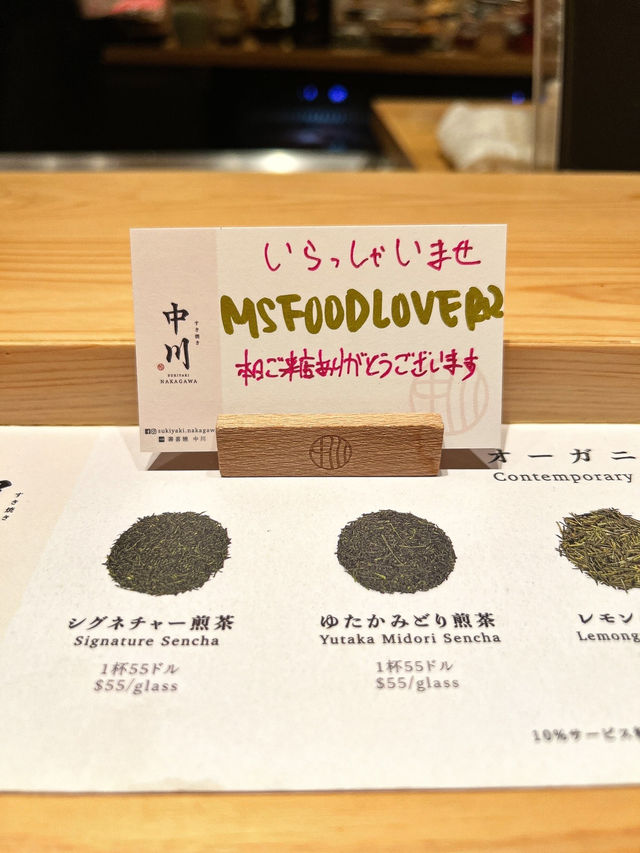 いらっしゃいませ
MSFOODLOVER
本日ご来店ありがとうございます
中川
すき焼き
SUKIYAKI
NAKAGAWA
sukiyaki.nakagawa
壽喜燒 中川
すき焼き
オーガニ
Contemporary
シグネチャー煎茶
Signature Sencha
1杯55ドル
$55/glass
ゆたかみどり煎茶
Yutaka Midori Sencha
1杯55ドル
$55/glass
レモン
Lemong
10%サービス